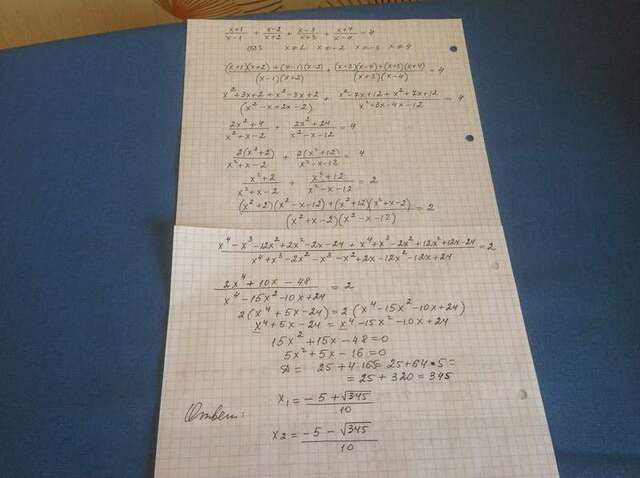 (x+1)/(x-1) + (x-2)/(x+2) + (x-3)/(x+3) + (x+4)/(x-4) = 4
ОДЗ: x≠1 x≠-2 x≠-3 x≠4
((x+1)(x+2)+(x-1)(x-2))/((x-1)(x+2)) + ((x-3)(x-4)+(x+3)(x+4))/((x+3)(x-4)) = 4
(x²+3x+2+x²-3x+2)/(x²-x+2x-2) + (x²-7x+12+x²+7x+12)/(x²+3x-4x-12) = 4
(2x²+4)/(x²+x-2) + (2x²+24)/(x²-x-12) = 4
2(x²+2)/(x²+x-2) + 2(x²+12)/(x²-x-12) = 4
(x²+2)/(x²+x-2) + (x²+12)/(x²-x-12) = 2
((x²+2)(x²-x-12)+(x²+12)(x²+x-2))/((x²+x-2)(x²-x-12)) = 2
(x⁴-x³-12x²+2x²-2x-24+x⁴+x³-2x²+12x²+12x-24)/(x⁴+x³-2x²-x³-x²+2x-12x²-12x+24) = 2
(2x⁴+10x-48)/(x⁴-15x²-10x+24) = 2
2(x⁴+5x-24)=2(x⁴-15x²-10x+24)
x⁴+5x-24=x⁴-15x²-10x+24
15x²+15x-48=0
5x²+5x-16=0
D= 25+4·16·5=25+64·5=
=25+320=345
x₁= (-5+√345)/10
Ответ:
x₂= (-5-√345)/10